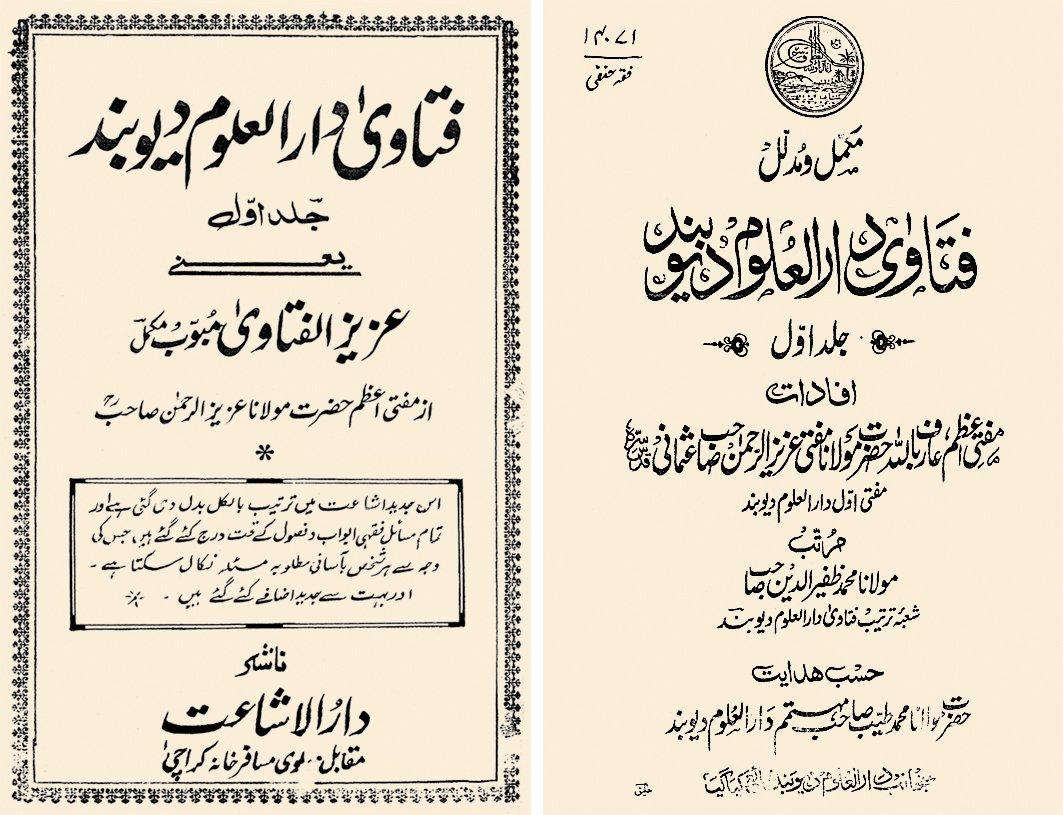 فتاویٰ دارالعلوم دیوبند
جلد اوّل
یعنے
عزیز الفتاویٰ مبوّب مکمل
از مفتی اعظم حضرت مولانا عزیز الرحمٰن صاحبؒ
*
اس جدید اشاعت میں ترتیب بالکل بدل دی گئی ہے اور
تمام مسائل فقہی ابواب و فصول کے تحت درج کئے گئے ہیں، جس کی
وجہ سے ہر شخص بآسانی مطلوبہ مسئلہ نکال سکتا ہے۔
اور بہت سے جدید اضافے کئے گئے ہیں۔
ناشر
دارُالاشاعت
مقابل مولوی مسافر خانہ کراچی
۱۴۰۷۱
فقہ حنفی
مکمّل و مُدلّل
فتاویٰ دارالعُلوم دیوبند
جلد اوّل
افادات
مفتی اعظم، عارف باللہ حضرت مولانا مفتی عزیز الرحمٰن صاحب عثمانی قدس سرہ
مفتی اوّل دارالعلوم دیوبند
مرتّب
مولانا محمد ظفیر الدین صاحب
شعبۂ ترتیب فتاویٰ دارالعلوم دیوبند
حسب ھدایت
حضرت مولانا محمد طیّب صاحب مہتمم دارالعُلوم دیوبند
دارالعلوم دیوبند